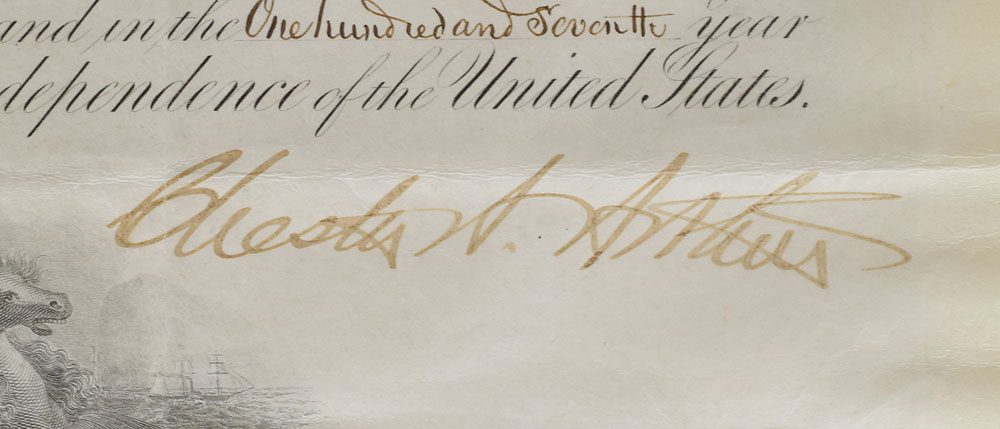 and in the One hundred and Seventh year
dependence of the United States.
Chester A. Arthur